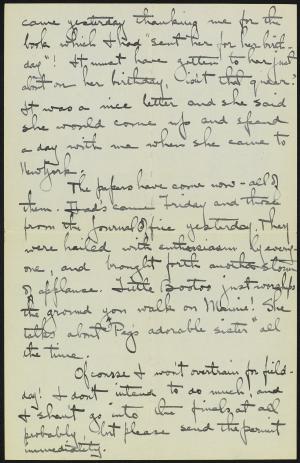 came yesterday thanking me for the
book which I had "sent her for her birth-
day"! It must have gotten to her just
about on her birthday. Isn't that queer?
It was a nice letter and she said
she would come up and spend
a day with me when she came to
New York.
The papers have come now - all of
them. Dad's came Friday and those
from the Journal office yesterday. They
were hailed with enthusiasm by every-
one, and brought forth another storm
of applause. Little Bootos just worships
the ground you walk on Marie! She
talks about "Peg's adorable sister" all
the time.
Of course I won't overtrain for field-
day! I don't intend to do much, and
I shan't go into the finals at all
probably. but please send the permit
immediately.